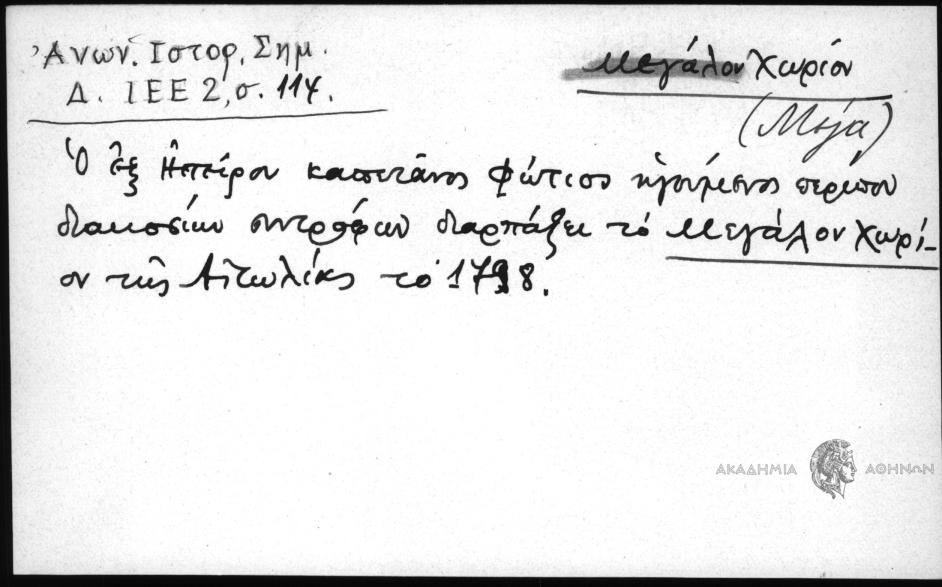 Ἀνων. Ιστορ. Σημ.
Δ. ΙΕΕ 2, σ. 114.
Μεγάλον Χωρίον
(Μέγα)
Ὁ ἐξ Ἠπείρου καπετάνος Φώτισος ἡγούμενος περίπου
διακοσίων συντρόφων διαρπάζει τὸ Μεγάλον Χωρί-
ον τῆς Αἰτωλίας τὸ 1798.
ΑΚΑΔΗΜΙΑ ΑΘΗΝΩΝ